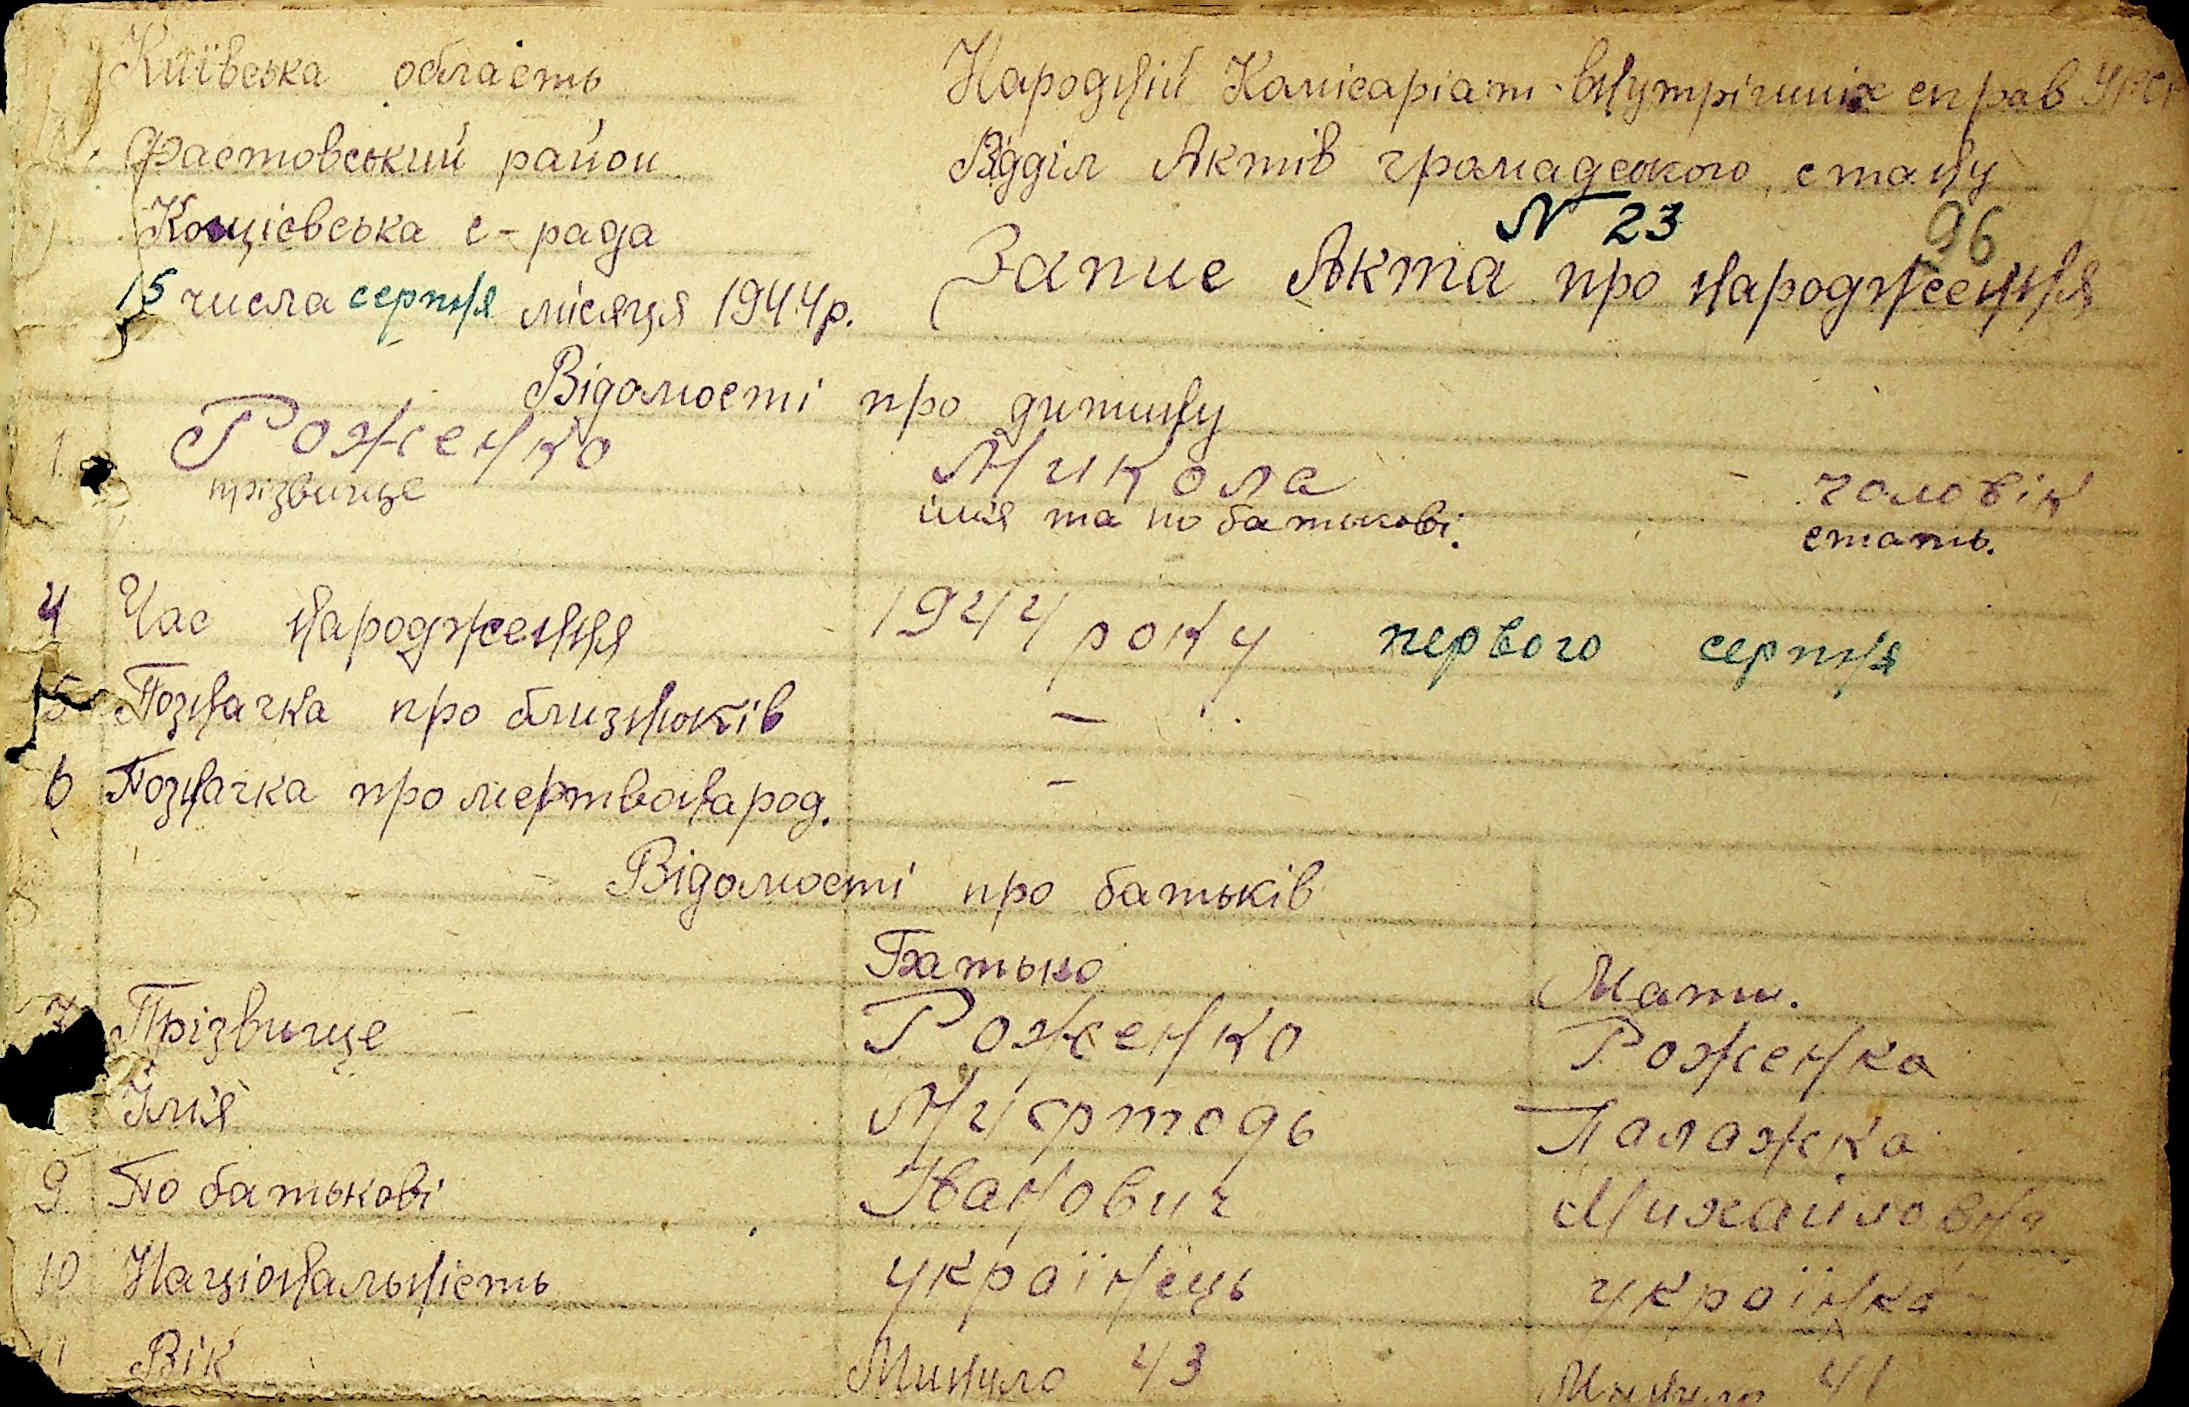 Київська область
Фастовський район
Кощієвська с-рада
15 числа серпня місяця 1944 р.
Народній Комісаріат внутрішніх справ УРСР
Відділ Актів громадського стану
№ 23
96
Запис Акта про народження
Відомості про дитину
1. Роженко Микола чоловік
прізвище ім'я та по батькові. стать.
4 Час народження 1944 року первого серпня
5 Позначка про близнюків —
6 Позначка про мертвонарод. —
Відомості про батьків
Батько Мати.
7 Прізвище Роженко Роженка
Ім'я Палажка
9 По батькові Іванович Михайловна
10 Національність українець українка
11 Вік Минуло 43 Минуло 41